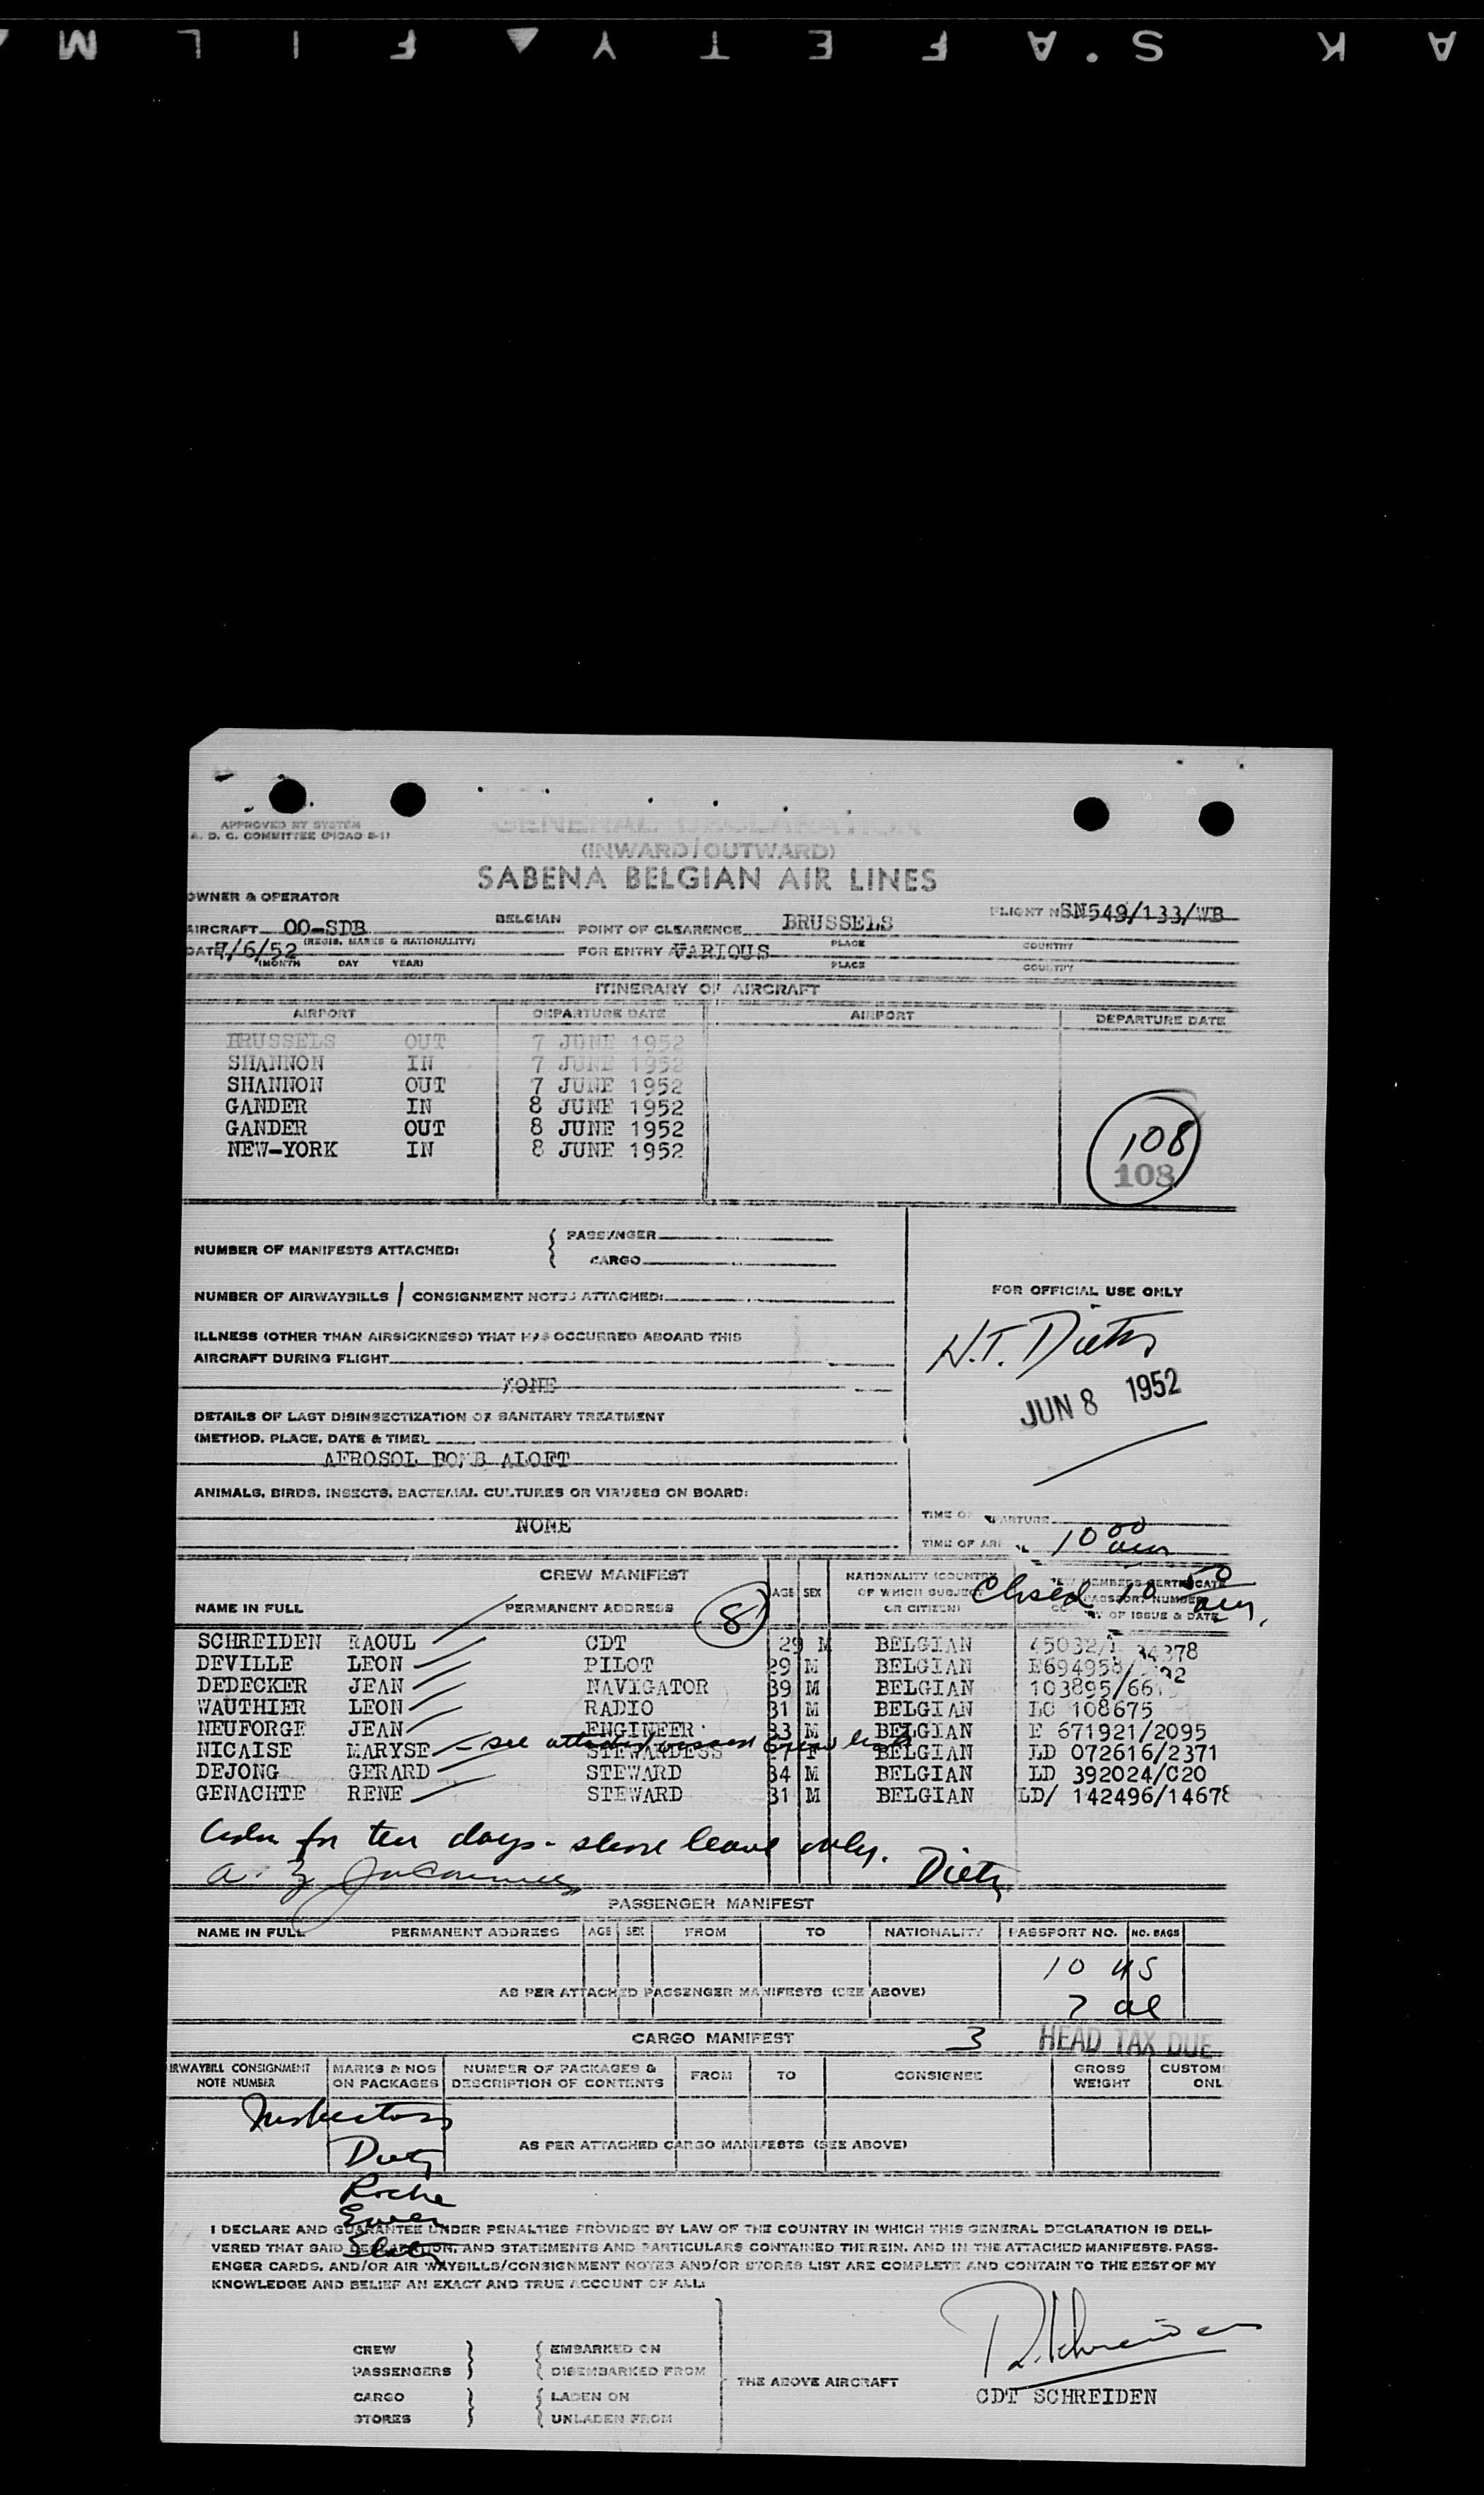 A K S A F E T Y FILM
APPROVED BY SYSTEM
A. D. C. COMMITTEE (PICAO 8-1)
GENERAL DECLARATION
(INWARD/OUTWARD)
SABENA BELGIAN AIR LINES
OWNER & OPERATOR
AIRCRAFT OO-SDB BELGIAN POINT OF CLEARENCE BRUSSELS FLIGHT N SN549/133/WB
(REGIS. MARKS & NATIONALITY) PLACE COUNTRY
DATE 7/6/52 FOR ENTRY VARIOUS
(MONTH DAY YEAR) PLACE COUNTRY
ITINERARY OF AIRCRAFT
AIRPORT DEPARTURE DATE AIRPORT DEPARTURE DATE
BRUSSELS OUT 7 JUNE 1952
SHANNON IN 7 JUNE 1952
SHANNON OUT 7 JUNE 1952
GANDER IN 8 JUNE 1952
GANDER OUT 8 JUNE 1952
NEW-YORK IN 8 JUNE 1952
108
108
NUMBER OF MANIFESTS ATTACHED: { PASSENGER
CARGO
NUMBER OF AIRWAYBILLS / CONSIGNMENT NOTES ATTACHED:
FOR OFFICIAL USE ONLY
ILLNESS (OTHER THAN AIRSICKNESS) THAT HAS OCCURRED ABOARD THIS
AIRCRAFT DURING FLIGHT
NONE
N.T. Dietz
JUN 8 1952
DETAILS OF LAST DISINSECTIZATION OR SANITARY TREATMENT
(METHOD, PLACE, DATE & TIME)
AEROSOL BOMB ALOFT
ANIMALS, BIRDS, INSECTS, BACTERIAL CULTURES OR VIRUSES ON BOARD:
NONE
TIME OF DEPARTURE
TIME OF ARR 10 00 am
Closed 10 50 am.
CREW MANIFEST
NAME IN FULL PERMANENT ADDRESS 8 AGE SEX NATIONALITY (COUNTRY
OF WHICH SUBJECT
OR CITIZEN) CREW MEMBERS CERTIFICATE
PASSPORT NUMBER
OF ISSUE & DATE
SCHREIDEN RAOUL CDT 29 M BELGIAN 45032/ 34378
DEVILLE LEON PILOT 29 M BELGIAN
DEDECKER JEAN NAVIGATOR 39 M BELGIAN
WAUTHIER LEON RADIO 31 M BELGIAN LC 108675
NEUFORGE JEAN ENGINEER 33 M BELGIAN E 671921/2095
NICAISE MARYSE - see attached crew list STEWARDESS 27 F BELGIAN LD 072616/2371
DEJONG GERARD STEWARD 34 M BELGIAN LD 392024/C20
GENACHTE RENE STEWARD 31 M BELGIAN LD/ 142496/14678
for ten days - shore leave only. Dietz
PASSENGER MANIFEST
NAME IN FULL PERMANENT ADDRESS AGE SEX FROM TO NATIONALITY PASSPORT NO. NO. BAGS
10 US
AS PER ATTACHED PASSENGER MANIFESTS (SEE ABOVE)
7 al
CARGO MANIFEST 3 HEAD TAX DUE
AIRWAYBILL CONSIGNMENT NOTE NUMBER MARKS & NOS ON PACKAGES NUMBER OF PACKAGES & DESCRIPTION OF CONTENTS FROM TO CONSIGNEE GROSS WEIGHT CUSTOMS ONL
Inspectors
AS PER ATTACHED CARGO MANIFESTS (SEE ABOVE)
Dietz
Roche
I DECLARE AND GUARANTEE UNDER PENALTIES PROVIDED BY LAW OF THE COUNTRY IN WHICH THIS GENERAL DECLARATION IS DELI-
VERED THAT SAID DECLARATION, AND STATEMENTS AND PARTICULARS CONTAINED THEREIN, AND IN THE ATTACHED MANIFESTS. PASS-
ENGER CARDS, AND/OR AIR WAYBILLS/CONSIGNMENT NOTES AND/OR STORES LIST ARE COMPLETE AND CONTAIN TO THE BEST OF MY
KNOWLEDGE AND BELIEF AN EXACT AND TRUE ACCOUNT OF ALL:
CREW EMBARKED ON
PASSENGERS DISEMBARKED FROM
THE ABOVE AIRCRAFT
CARGO LADEN ON
STORES UNLADEN FROM
R. Schreiden
CDT SCHREIDEN